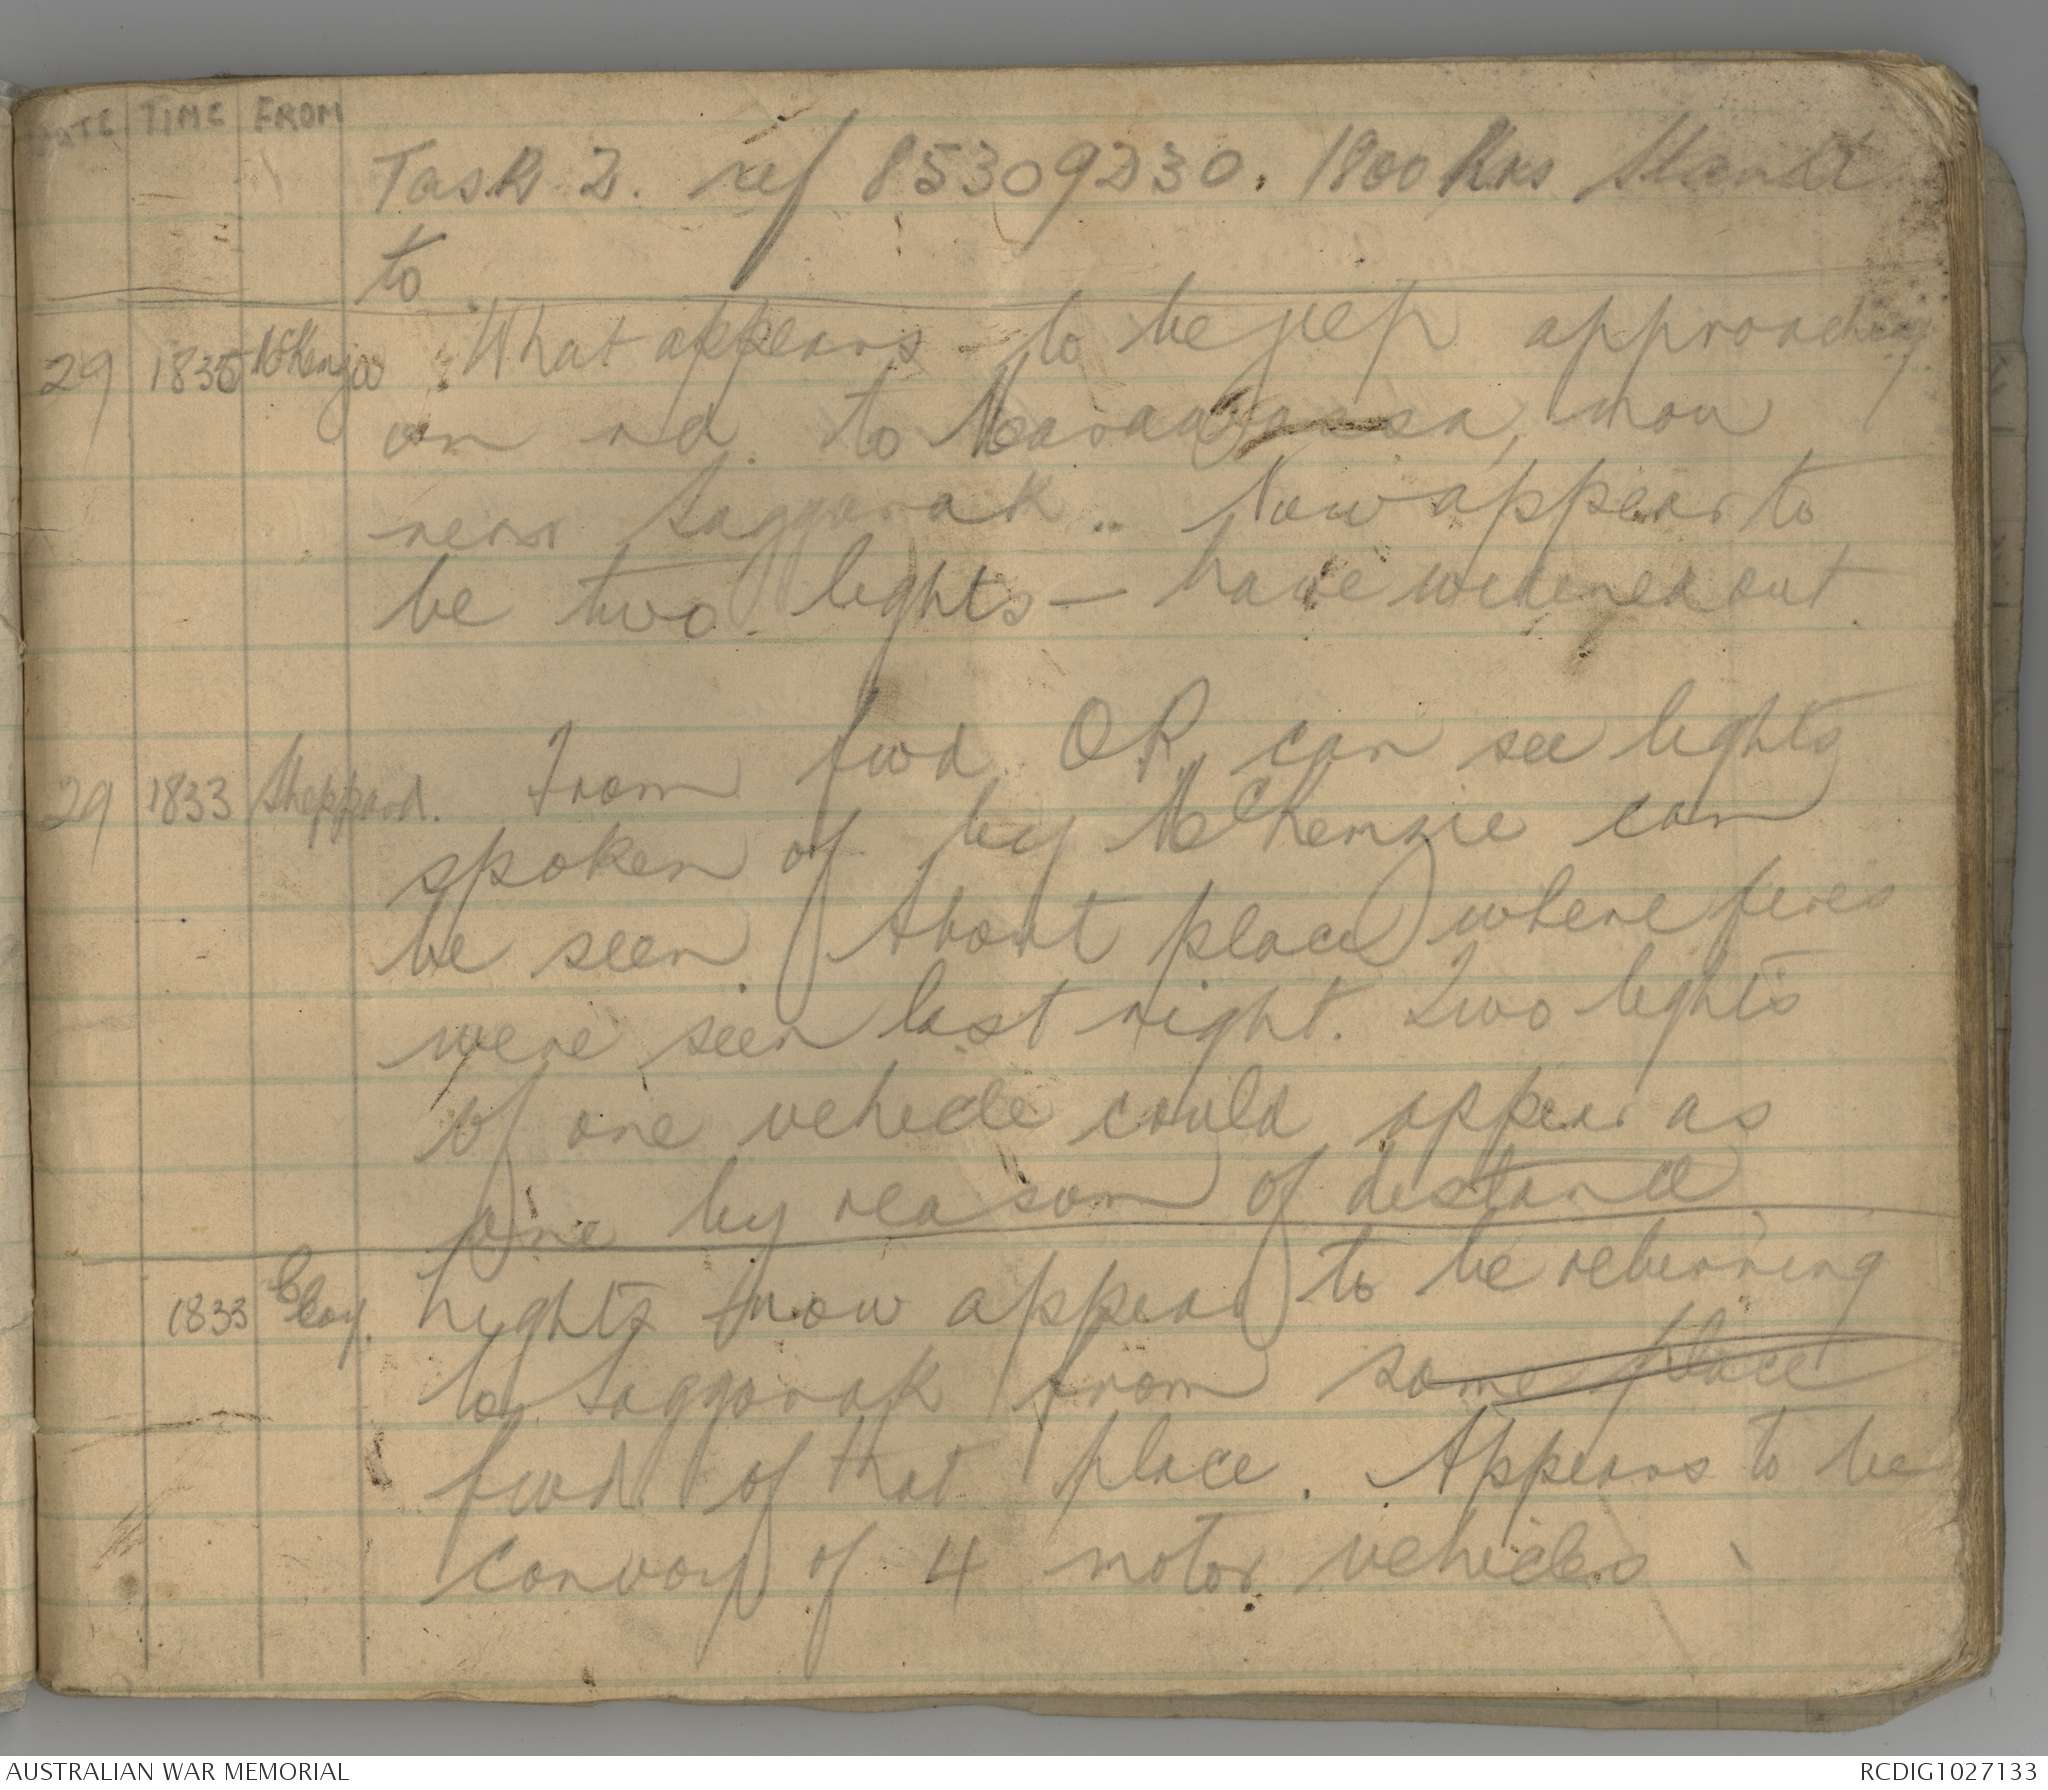 DATE TIME FROM
Task 2. ref 85309230. 1800 hrs Stand
to
29 1835 McKenzie What appears to be jeep approaching
on rd. to, now
near Saggarak.. Now appear to
be two lights – have widened out
29 1833 Sheppard. From fwd OP, can see lights
spoken of by McKenzie can
be seen. About place where fires
were seen last night. Two lights
of one vehicle could appear as
one by reason of distance
1833 Coy. Lights now appear to be returning
to Saggarak from some place
fwd. of that place. Appears to be
convoy of 4 motor vehicles
AUSTRALIAN WAR MEMORIAL
RCDIG1027133